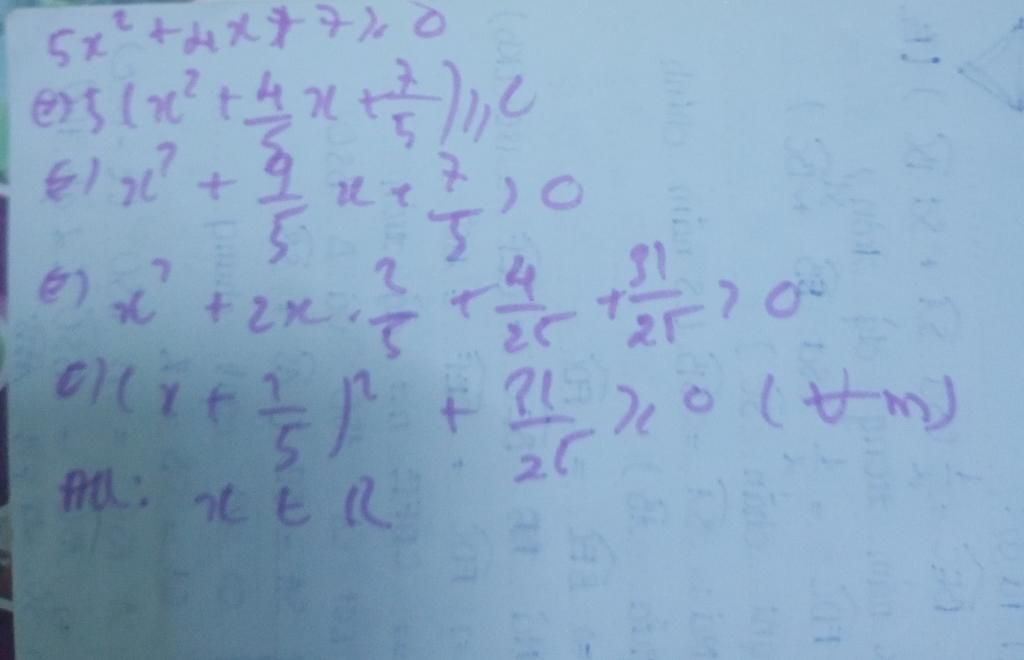 5x² + 4x + 7 ≥ 0
⇔ 5(x² + 4/5 x + 7/5) ≥ 0
⇔ x² + 4/5 x + 7/5 > 0
⇔ x² + 2x . 2/5 + 4/25 + 31/25 > 0
⇔ (x + 2/5)² + 31/25 ≥ 0 (∀ m)
x ∈ R